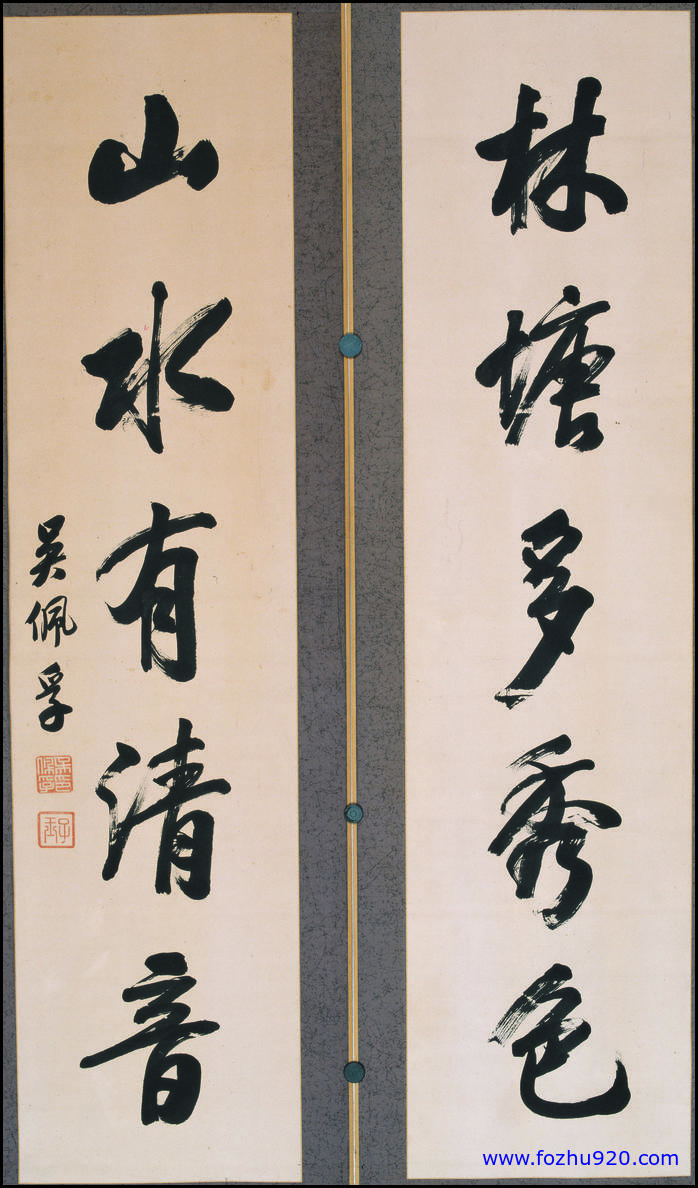 林塘多秀色
山水有清音
吴佩孚
www.fozhu920.com